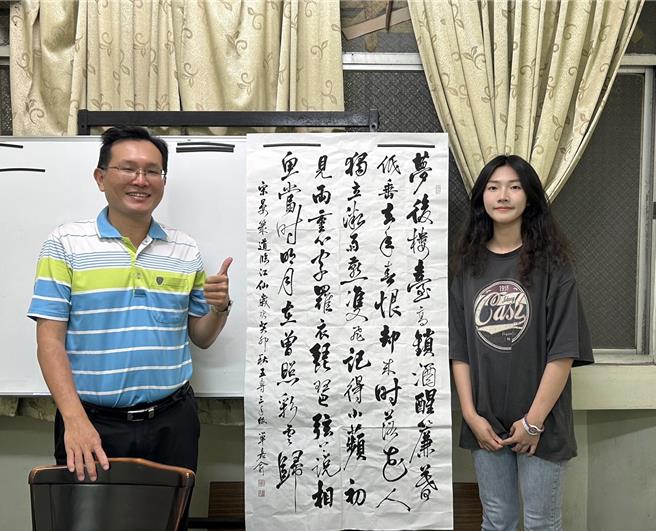 夢後樓臺高鎖酒醒簾幕
低垂去年春恨却來時落花人
獨立微雨燕雙飛記得小蘋初
見兩重心字羅衣琵琶弦上說相
思當時明月在曾照彩雲歸
宋晏幾道臨江仙歲次癸卯秋五年三班單